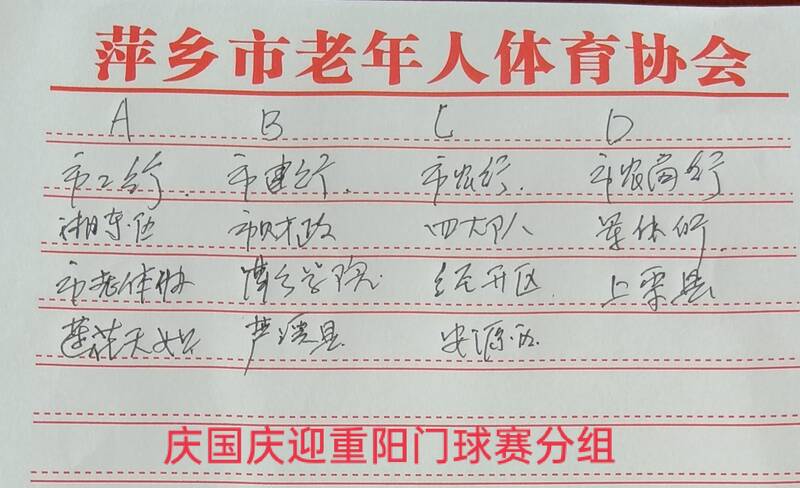 萍乡市老年人体育协会
A B C D
市工行. 市建行. 市农行. 市农商行
湘东区 市财政 四大队 军休所.
市老体协 萍乡学院. 经开区. 上栗县
莲花天如 芦溪县. 安源区
庆国庆迎重阳门球赛分组